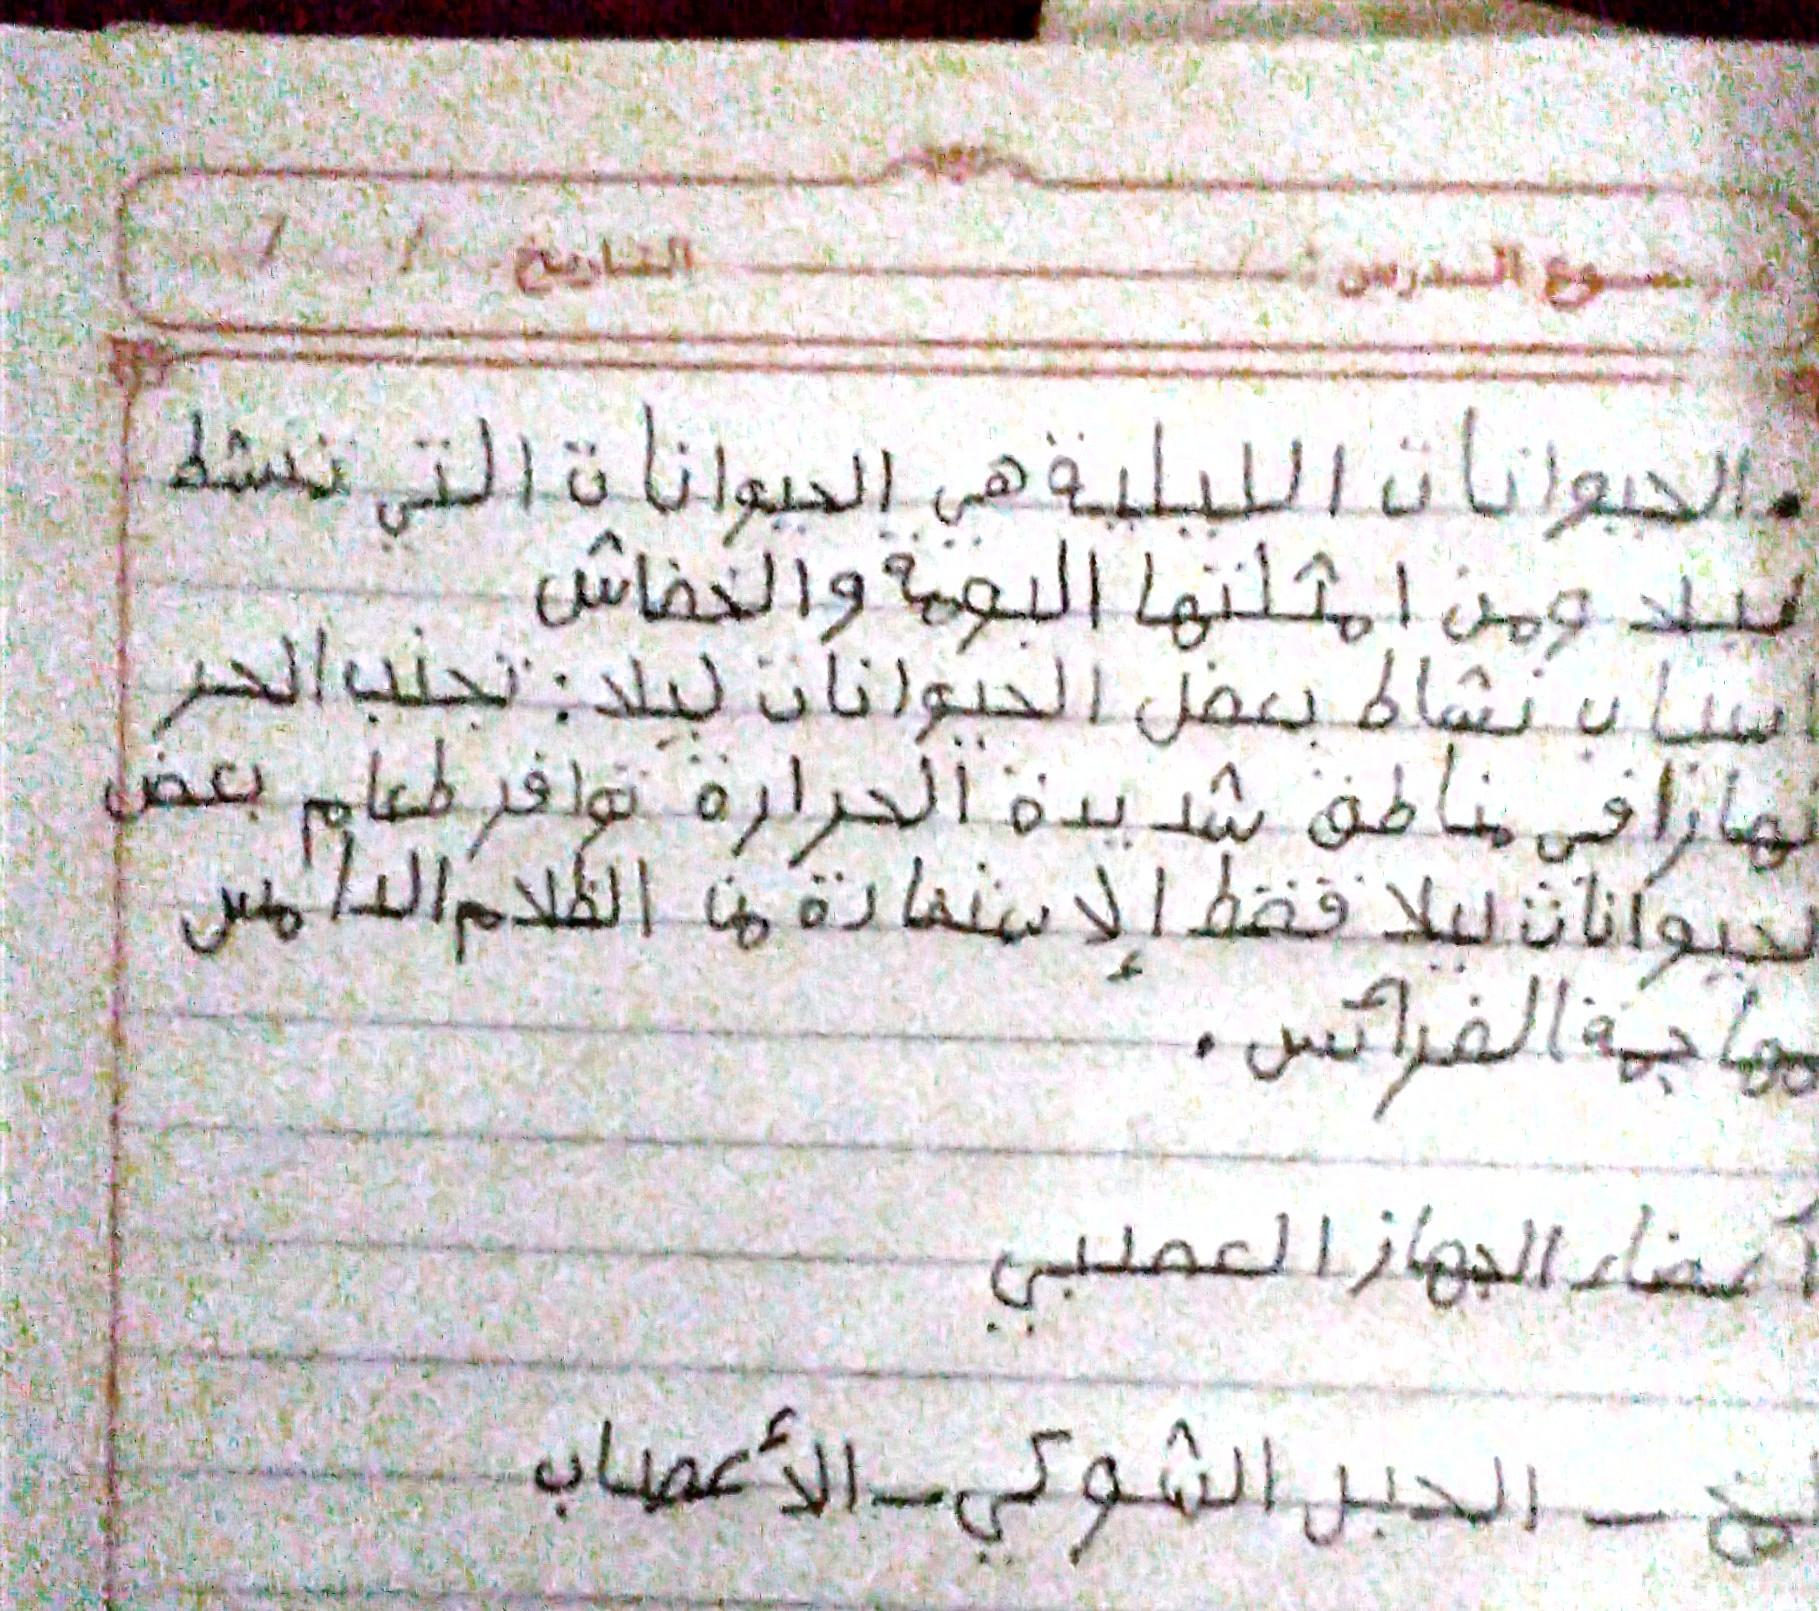 موضوع الدرس : التاريخ / /
. الحيوانات الليلية هي الحيوانات التي تنشط
ليلا ومن امثلتها البومة والخفاش
اسباب نشاط بعض الحيوانات ليلا : تجنب الحر
نهارا في مناطق شديدة الحرارة توافر طعام بعض
الحيوانات ليلا فقط الإستفادة من الظلام الدامس
مهاجمة الفرائس .
أعضاء الجهاز العصبي
المخ - الحبل الشوكي - الأعصاب